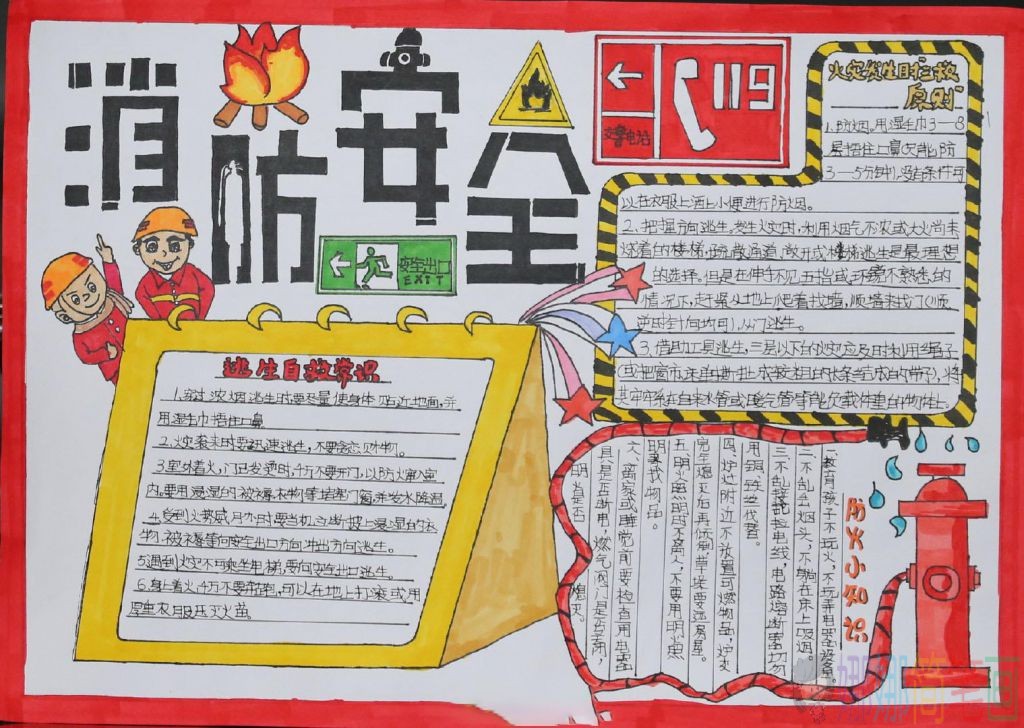 消防安全
119
安全出口
EXIT
火灾发生时"三救
原则"
1.防烟。用湿毛巾3—8
层捂住口鼻
3—5分钟,没有条件可
以在衣服上洒上小便进行防烟。
2.把握方向逃生,发生火灾时,利用烟气不浓或大火尚未
烧着的楼梯、疏散通道、敞开式楼梯逃生是最理想
的选择。但是在伸手不见五指或环境不熟悉的
情况下,赶紧从地上爬着找墙,顺墙来找门(顺
逆时针向均可),从门逃生。
3.借助工具逃生,三层以下的火灾应及时利用绳子
(或把窗布、床单撕扯成较粗的长条结成的带子),将
其牢牢系在自来水管或暖气管等能负载体重的物体上。
逃生自救常识
1.穿过浓烟逃生时要尽量使身体贴近地面,并
用湿毛巾捂住口鼻
2.火灾袭来时要迅速逃生,不要贪恋财物。
3.室外着火,门已发烫时,千万不要开门,以防大火窜入室
内,要用浸湿的被褥、衣物等堵塞门窗,并泼水降温
4.受到火势威胁时要当机立断披上浸湿的衣
物、被褥等向安全出口方向冲出方向逃生。
5遇到火灾不可乘坐电梯,要向安全出口逃生。
6.身上着火,千万不要奔跑,可以在地上打滚或用
厚重衣服压灭火苗。
防火小知识
一、教育孩子不玩火,不玩弄电器设备。
二、不乱丢烟头,不躺在床上吸烟。
三、不乱接乱拉电线,电路熔断器切勿
用铜、铁丝代替。
四、炉灶附近不放置可燃物品,炉灰
完全熄灭后再倾倒,草垛要远离房屋。
五、明火照明时不离人,不要用明火照
明寻找物品。
六、离家或睡觉前要检查用电器
具是否断电,燃气阀门是否关闭,
明火是否熄灭。